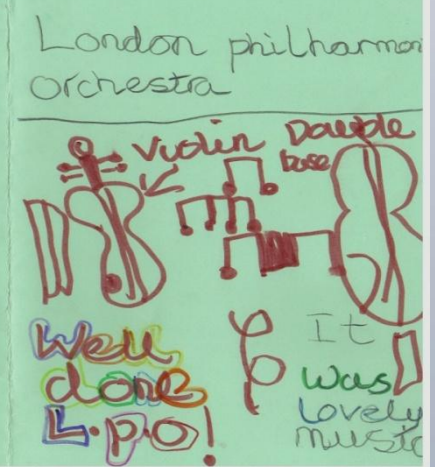 London philharmon
orchestra
Violin
Double
base
Well
done
L.p.o!
It
was
lovely
music